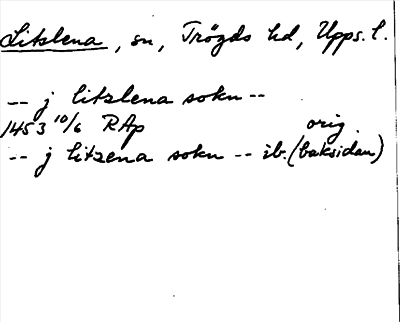 Litslena, sn, Trögds hd, Upps. l.
-- j litzlena sokn --
1453 10/6 RAp orig.
-- j litzena sokn -- ib. (baksidan)